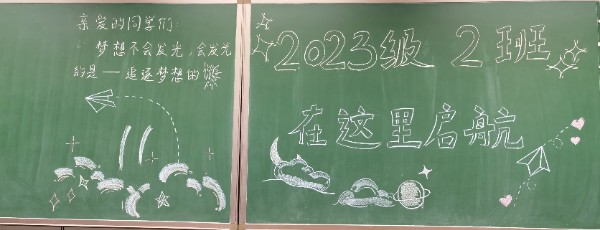 亲爱的同学们:
梦想不会发光,会发光
的是——追逐梦想的你
2023级 2班
在这里启航